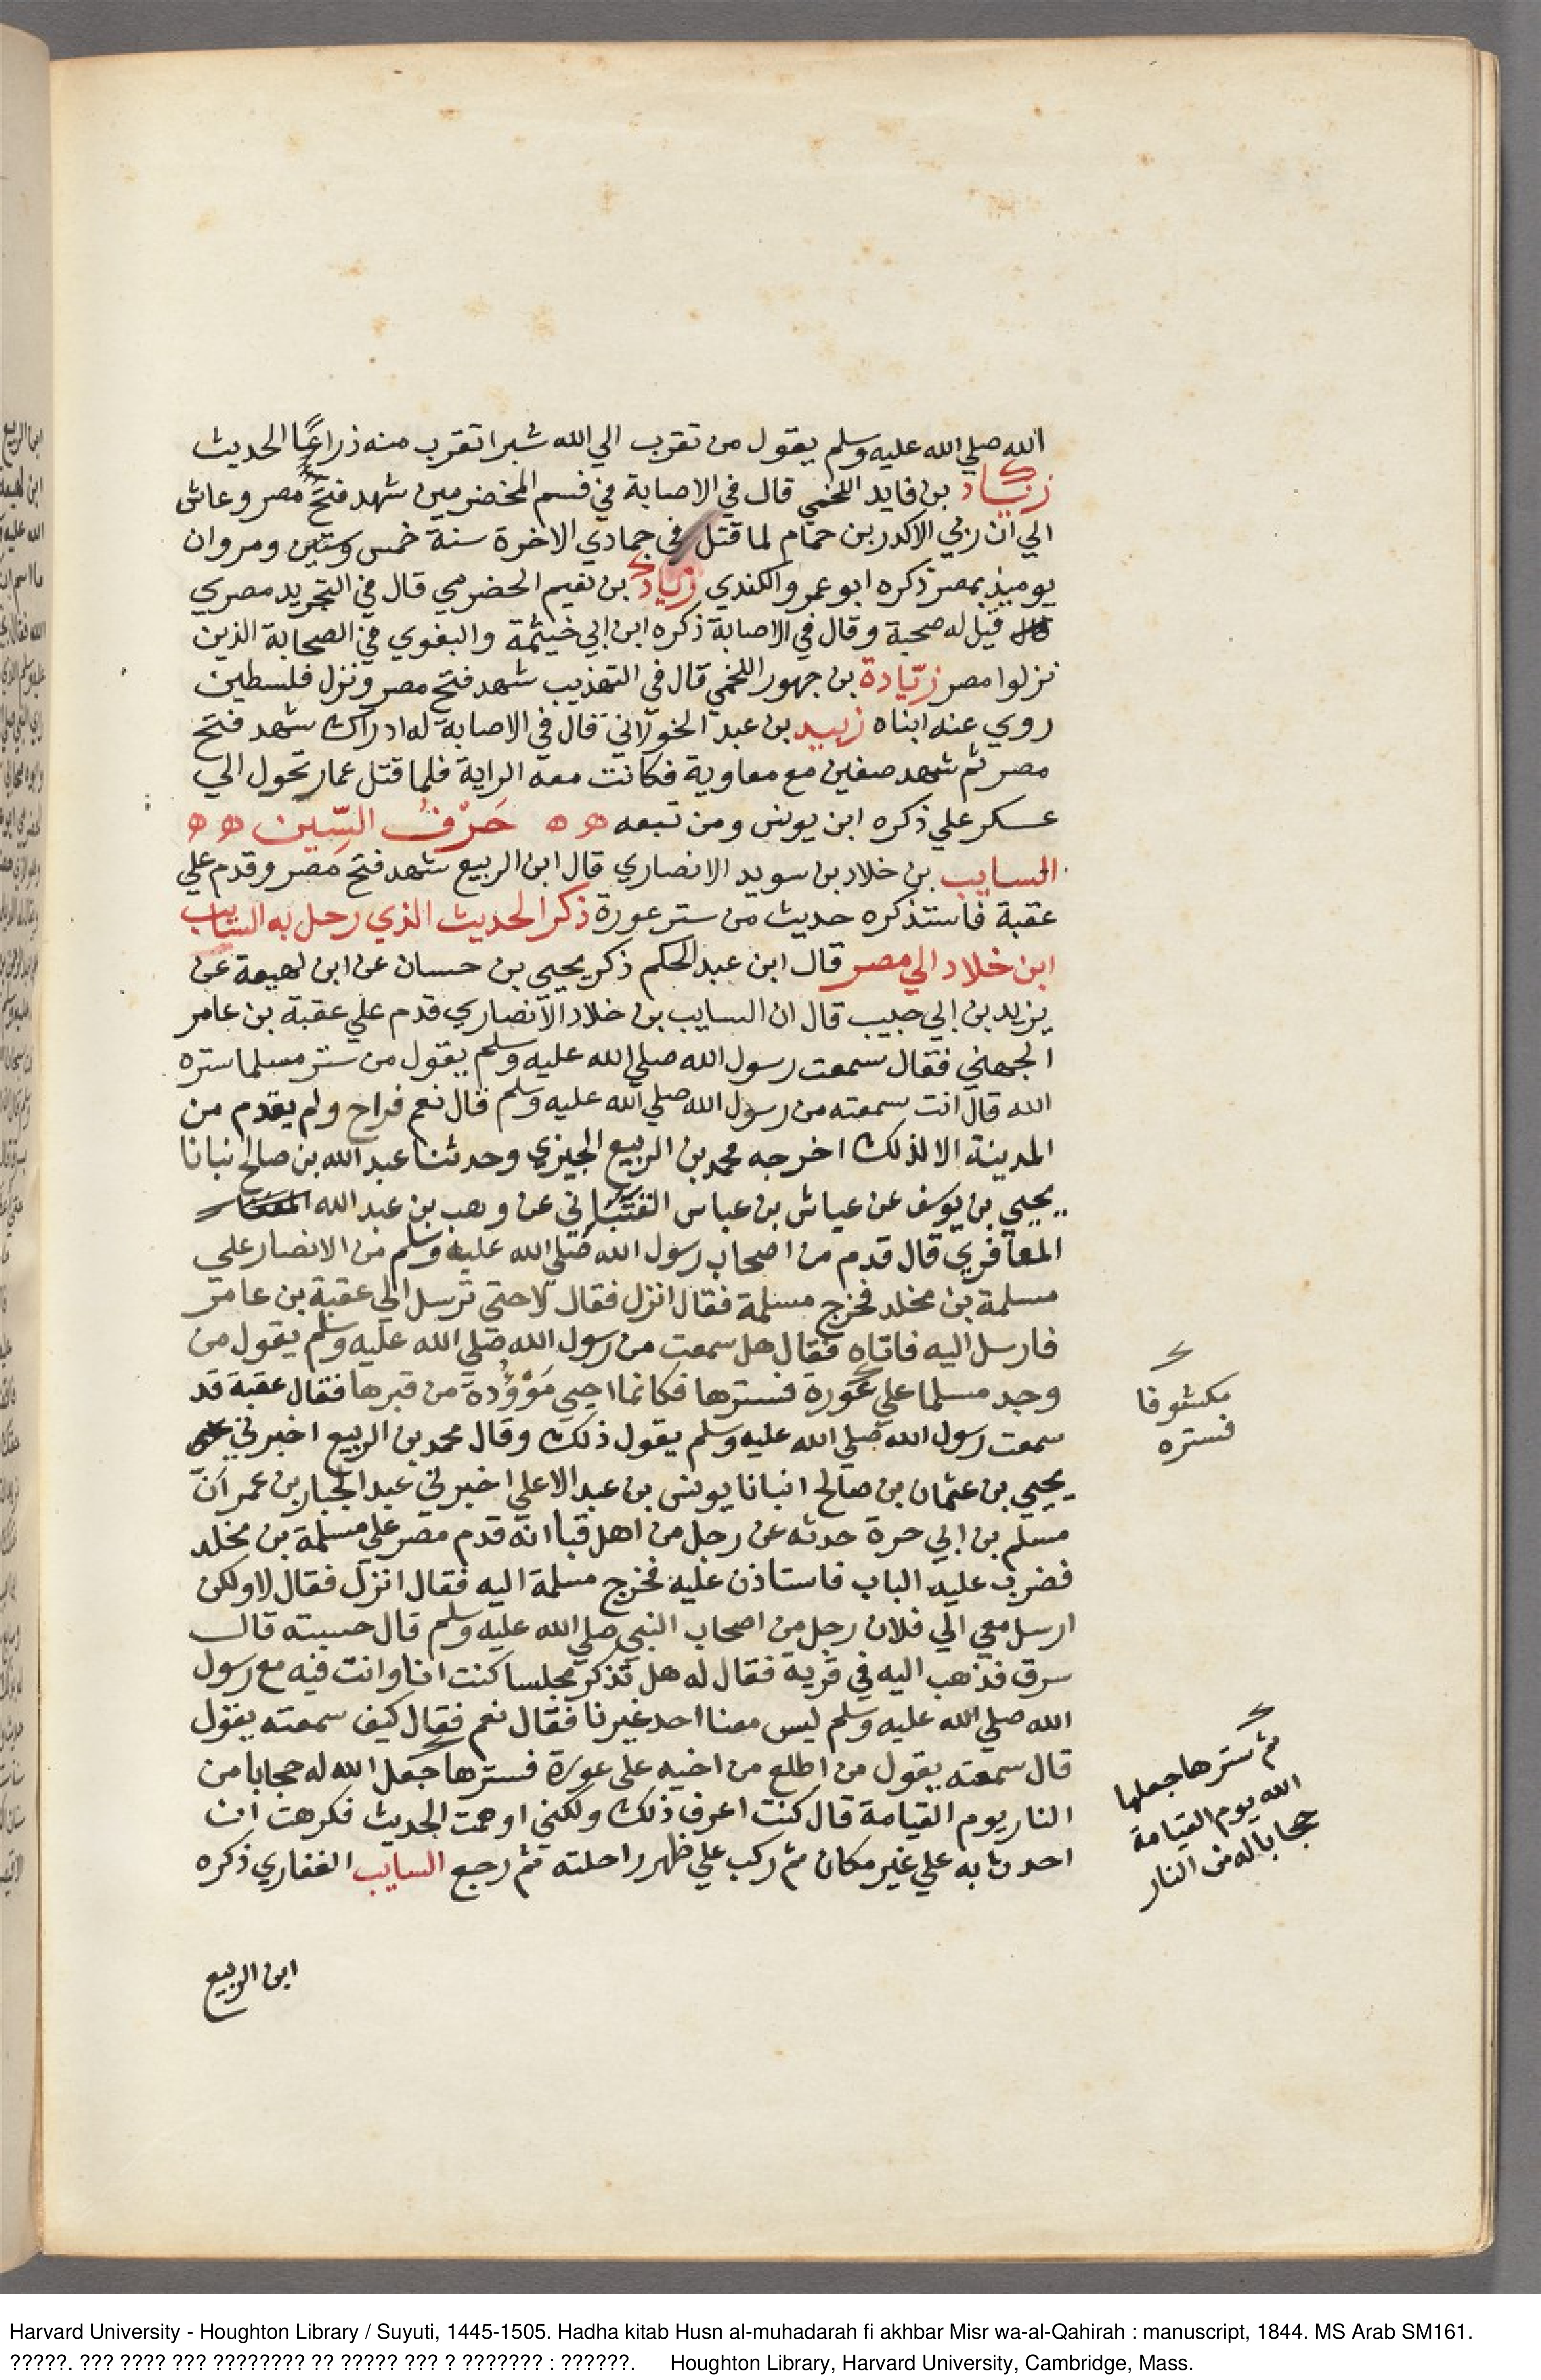 الله صلي الله عليه وسلم يقول من تقرب الي الله شبرا تقرب منه ذراعا الحديث
زياد بن فايد اللخمي قال في الاصابة في قسم المخضرمين شهد فتح مصر وعاش
الي ان رثي الاكدر بن حمام لما قتل في جمادي الاخرة سنة خمس وستين ومروان
يوميذ بمصر ذكره ابو عمرو الكندي زياد بن نعيم الحضرمي قال في التجريد مصري
قيل له صحبة وقال في الاصابة ذكره ابن ابي خيثمة والبغوي في الصحابة الذين
نزلوا مصر زيادة بن جهور اللخمي قال في التهذيب شهد فتح مصر ونزل فلسطين
روي عنه ابناه زبيد بن عبد الخولاني قال في الاصابة له ادراك شهد فتح
مصر ثم شهد صفين مع معاوية فكانت معه الراية فلما قتل عمار تحول الي
عسكر علي ذكره ابن يونس ومن تبعه ه ه حَرْفُ السِّين ه ه
السايب بن خلاد بن سويد الانصاري قال ابن الربيع شهد فتح مصر وقدم علي
عقبة فاستذكره حديث من ستر عورة ذكر الحديث الذي رحل به السايب
ابن خلاد الي مصر قال ابن عبد الحكم ذكر يحيي بن حسان عن ابن لهيعة عن
يزيد بن ابي حبيب قال ان السايب بن خلاد الانصاري قدم علي عقبة بن عامر
الجهني فقال سمعت رسول الله صلي الله عليه وسلم يقول من ستر مسلما ستره
الله قال انت سمعته من رسول الله صلي الله عليه وسلم قال نعم فراح ولم يقدم من
المدينة الا لذلك اخرجه محمد بن الربيع الجيزي وحدثنا عبد الله بن صالح نبانا
يحيي بن يوسف عن عياش بن عباس القتباني عن وهب بن عبد الله
المعافري قال قدم من اصحاب رسول الله صلي الله عليه وسلم من الانصار علي
مسلمة بن مخلد فخرج مسلمة فقال انزل فقال لا حتي ترسل الي عقبة بن عامر
فارسل اليه فاتاه فقال هل سمعت من رسول الله صلي الله عليه وسلم يقول من
وجد مسلما علي عورة فسترها فكانما احيي مَوْؤُدة من قبرها فقال عقبة قد
مكشوفا
فستره
سمعت رسول الله صلي الله عليه وسلم يقول ذلك وقال محمد بن الربيع اخبرني
يحيي بن عثمان بن صالح انبانا يونس بن عبد الاعلي اخبرني عبد الجبار بن عمر ان
مسلم بن ابي حرة حدثه عن رجل من اهل قبا انه قدم مصر علي مسلمة بن مخلد
فضرب عليه الباب فاستاذن عليه فخرج مسلمة اليه فقال انزل فقال لا ولكن
ارسل معي الي فلان رجل من اصحاب النبي صلي الله عليه وسلم قال حسبته قال
سرق فذهب اليه في قرية فقال له هل تذكر مجلسا كنت انا وانت فيه مع رسول
الله صلي الله عليه وسلم ليس معنا احد غيرنا فقال نعم فقال كيف سمعته يقول
قال سمعته يقول من اطلع من اخيه علي عورة فسترها جعل الله له حجابا من
ثم سترها جعلها
الله يوم القيامة
حجابا له من النار
النار يوم القيامة قال كنت اعرف ذلك ولكني اوهمت الحديث فكرهت ان
احدث به علي غير مكان ثم ركب علي ظهر راحلته ثم رجع السايب الغفاري ذكره
ابن الربيع
Harvard University - Houghton Library / Suyuti, 1445-1505. Hadha kitab Husn al-muhadarah fi akhbar Misr wa-al-Qahirah : manuscript, 1844. MS Arab SM161.
?????. ??? ???? ??? ???????? ?? ????? ??? ? ??????? : ??????. Houghton Library, Harvard University, Cambridge, Mass.